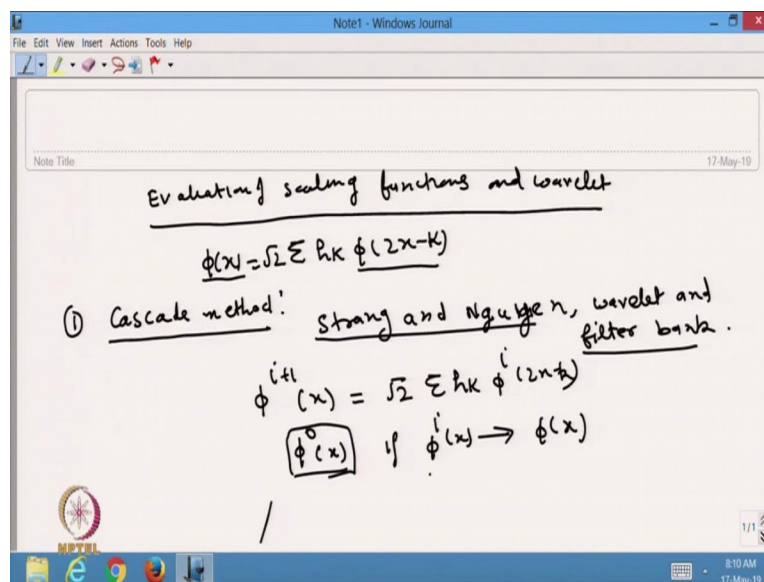 Note1 - Windows Journal
File Edit View Insert Actions Tools Help
Note Title
17-May-19
Evaluation of scaling functions and wavelet
ϕ(x) = √2 Σ hk ϕ(2x-k)
① Cascade method: Strang and Nguyen, wavelet and
filter bank.
ϕ^{i+1}(x) = √2 Σ hk ϕ^{i}(2x-k)
ϕ^{0}(x) if ϕ^{i}(x) → ϕ(x)
NPTEL
1/1
8:10 AM
17-May-19